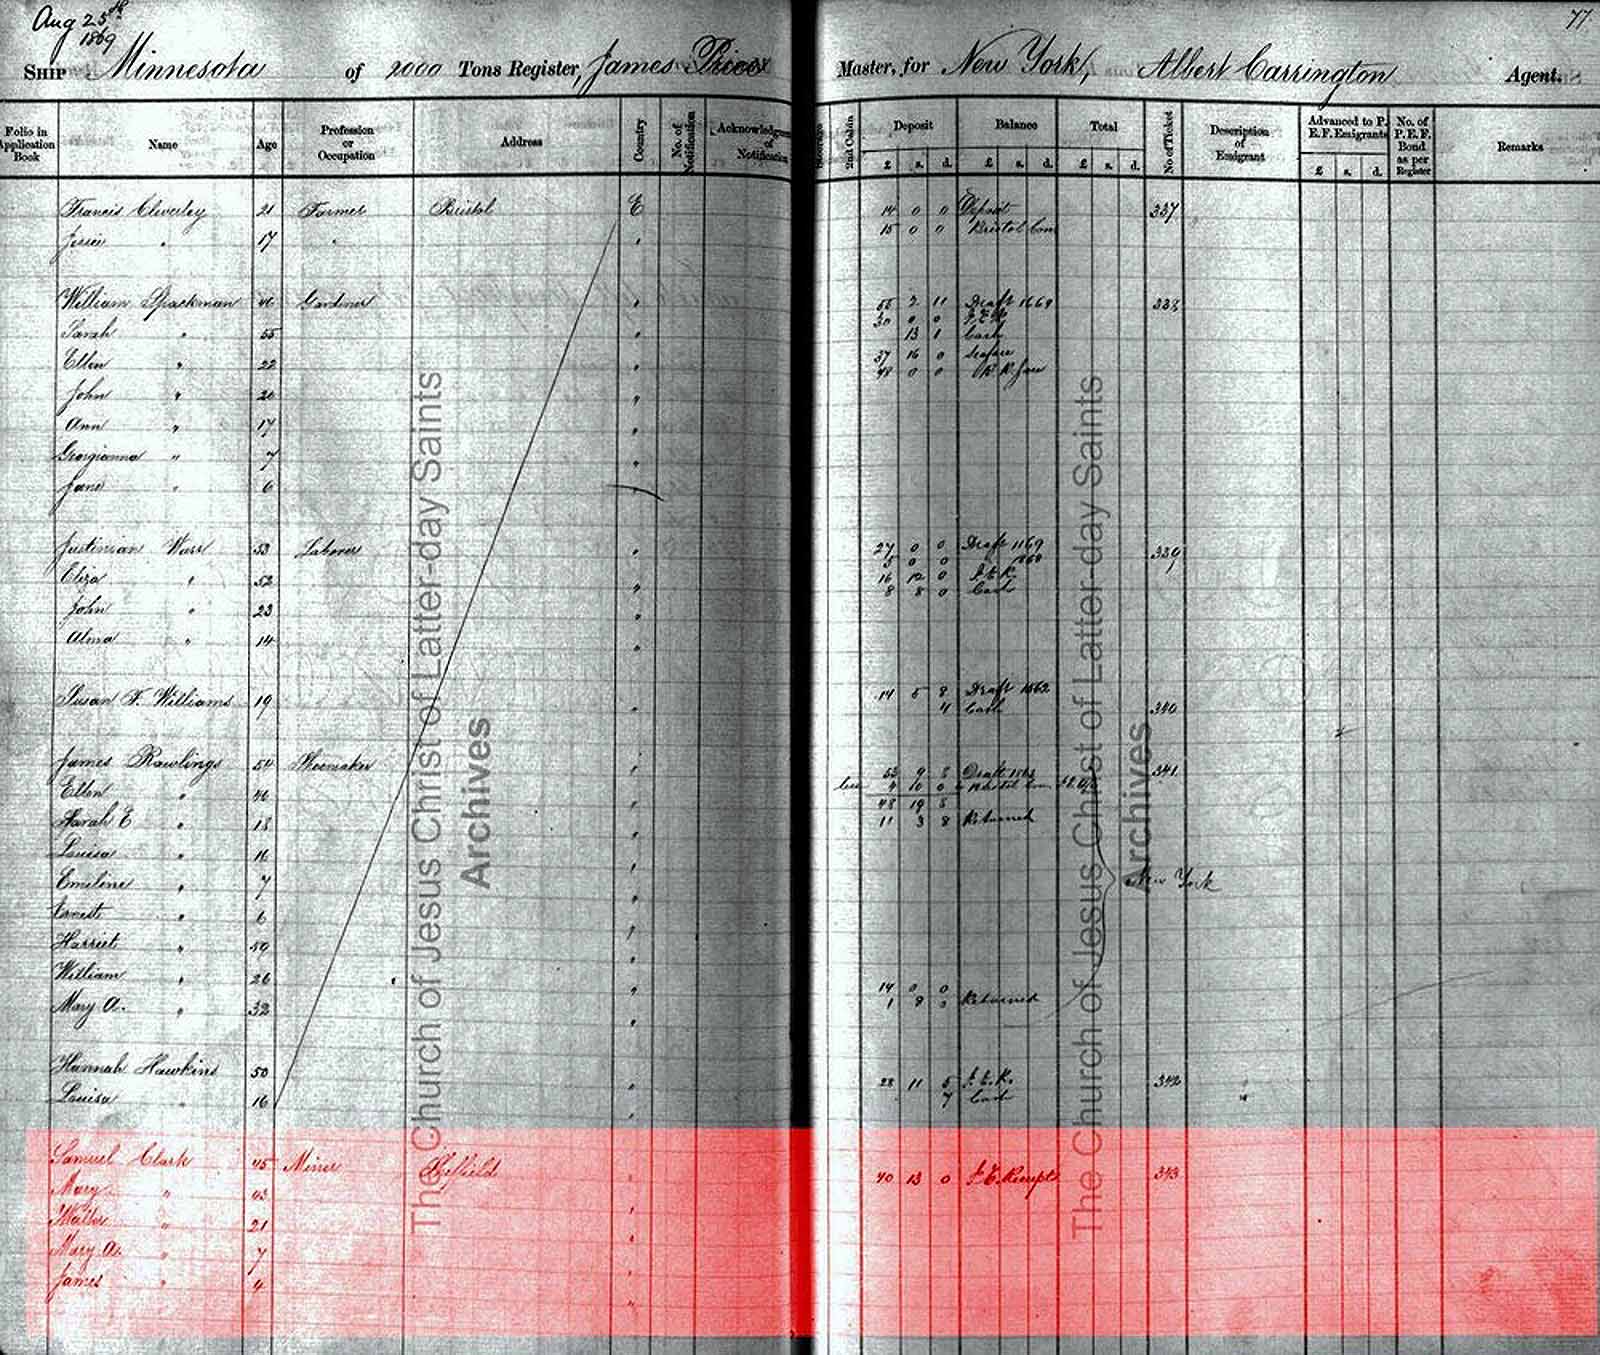 Aug 25th
1869
77
SHIP Minnesota of 2000 Tons Register, James Price Master, for New York, Albert Carrington Agent.
Folio in Application Book Name Age Profession or Occupation Address Country No. of Notification Acknowledgment of Notification 2nd Cabin Deposit Balance Total No of Ticket Description of Emigrant Advanced to P. E. F. Emigrants No. of P. E. F. Bond as per Register Remarks
£ s. d. £ s. d. £ s. d. £ s. d.
Francis Cleverley 21 Farmer Bristol E 14 0 0 Deposit 337
Jessie " 17 " " 15 0 0 Bristol Com
William Spackman Gardener " 55 2 11 Draft 1869 338
30 0 0
Sarah " 55 " 13 1 Cash
Ellen " 22 " 37 16 0
48 0 0 R R fare
John " 20 "
Ann " 17 "
Georgianna " 7 "
Jane " 6
Justinian Warr 53 Laborer " 27 0 0 Draft 1869 339
5 0 0 1868
Eliza " 52 " 16 12 0
John " 23 " 8 8 0 Cash
Alma " 14 "
Susan F. Williams 19 " 14 5 8 Draft 1862
4 Cash 340
James Rawlings 54 Shoemaker " 53 9 8 Draft 341
Ellen " 46 " less 4 10 0 Bristol Com
48 19 8
Sarah E " 18 " 11 3 8 Returned
Louisa " "
Emiline " 7 " New York
Ernest " 6 "
Harriet " "
William " 26 "
14 0 0
Mary A. " 32 " 1 8 Returned
Hannah Hawkins 50 " 28 11 5 342
Louisa " 16 " 7 Cash
Samuel Clark 45 Miner Sheffield " 40 13 0 Receipt 343
Mary " 43 "
Walter " 21 "
Mary A. " 7 "
James " 4 "
The Church of Jesus Christ of Latter-day Saints
Archives
The Church of Jesus Christ of Latter-day Saints
Archives